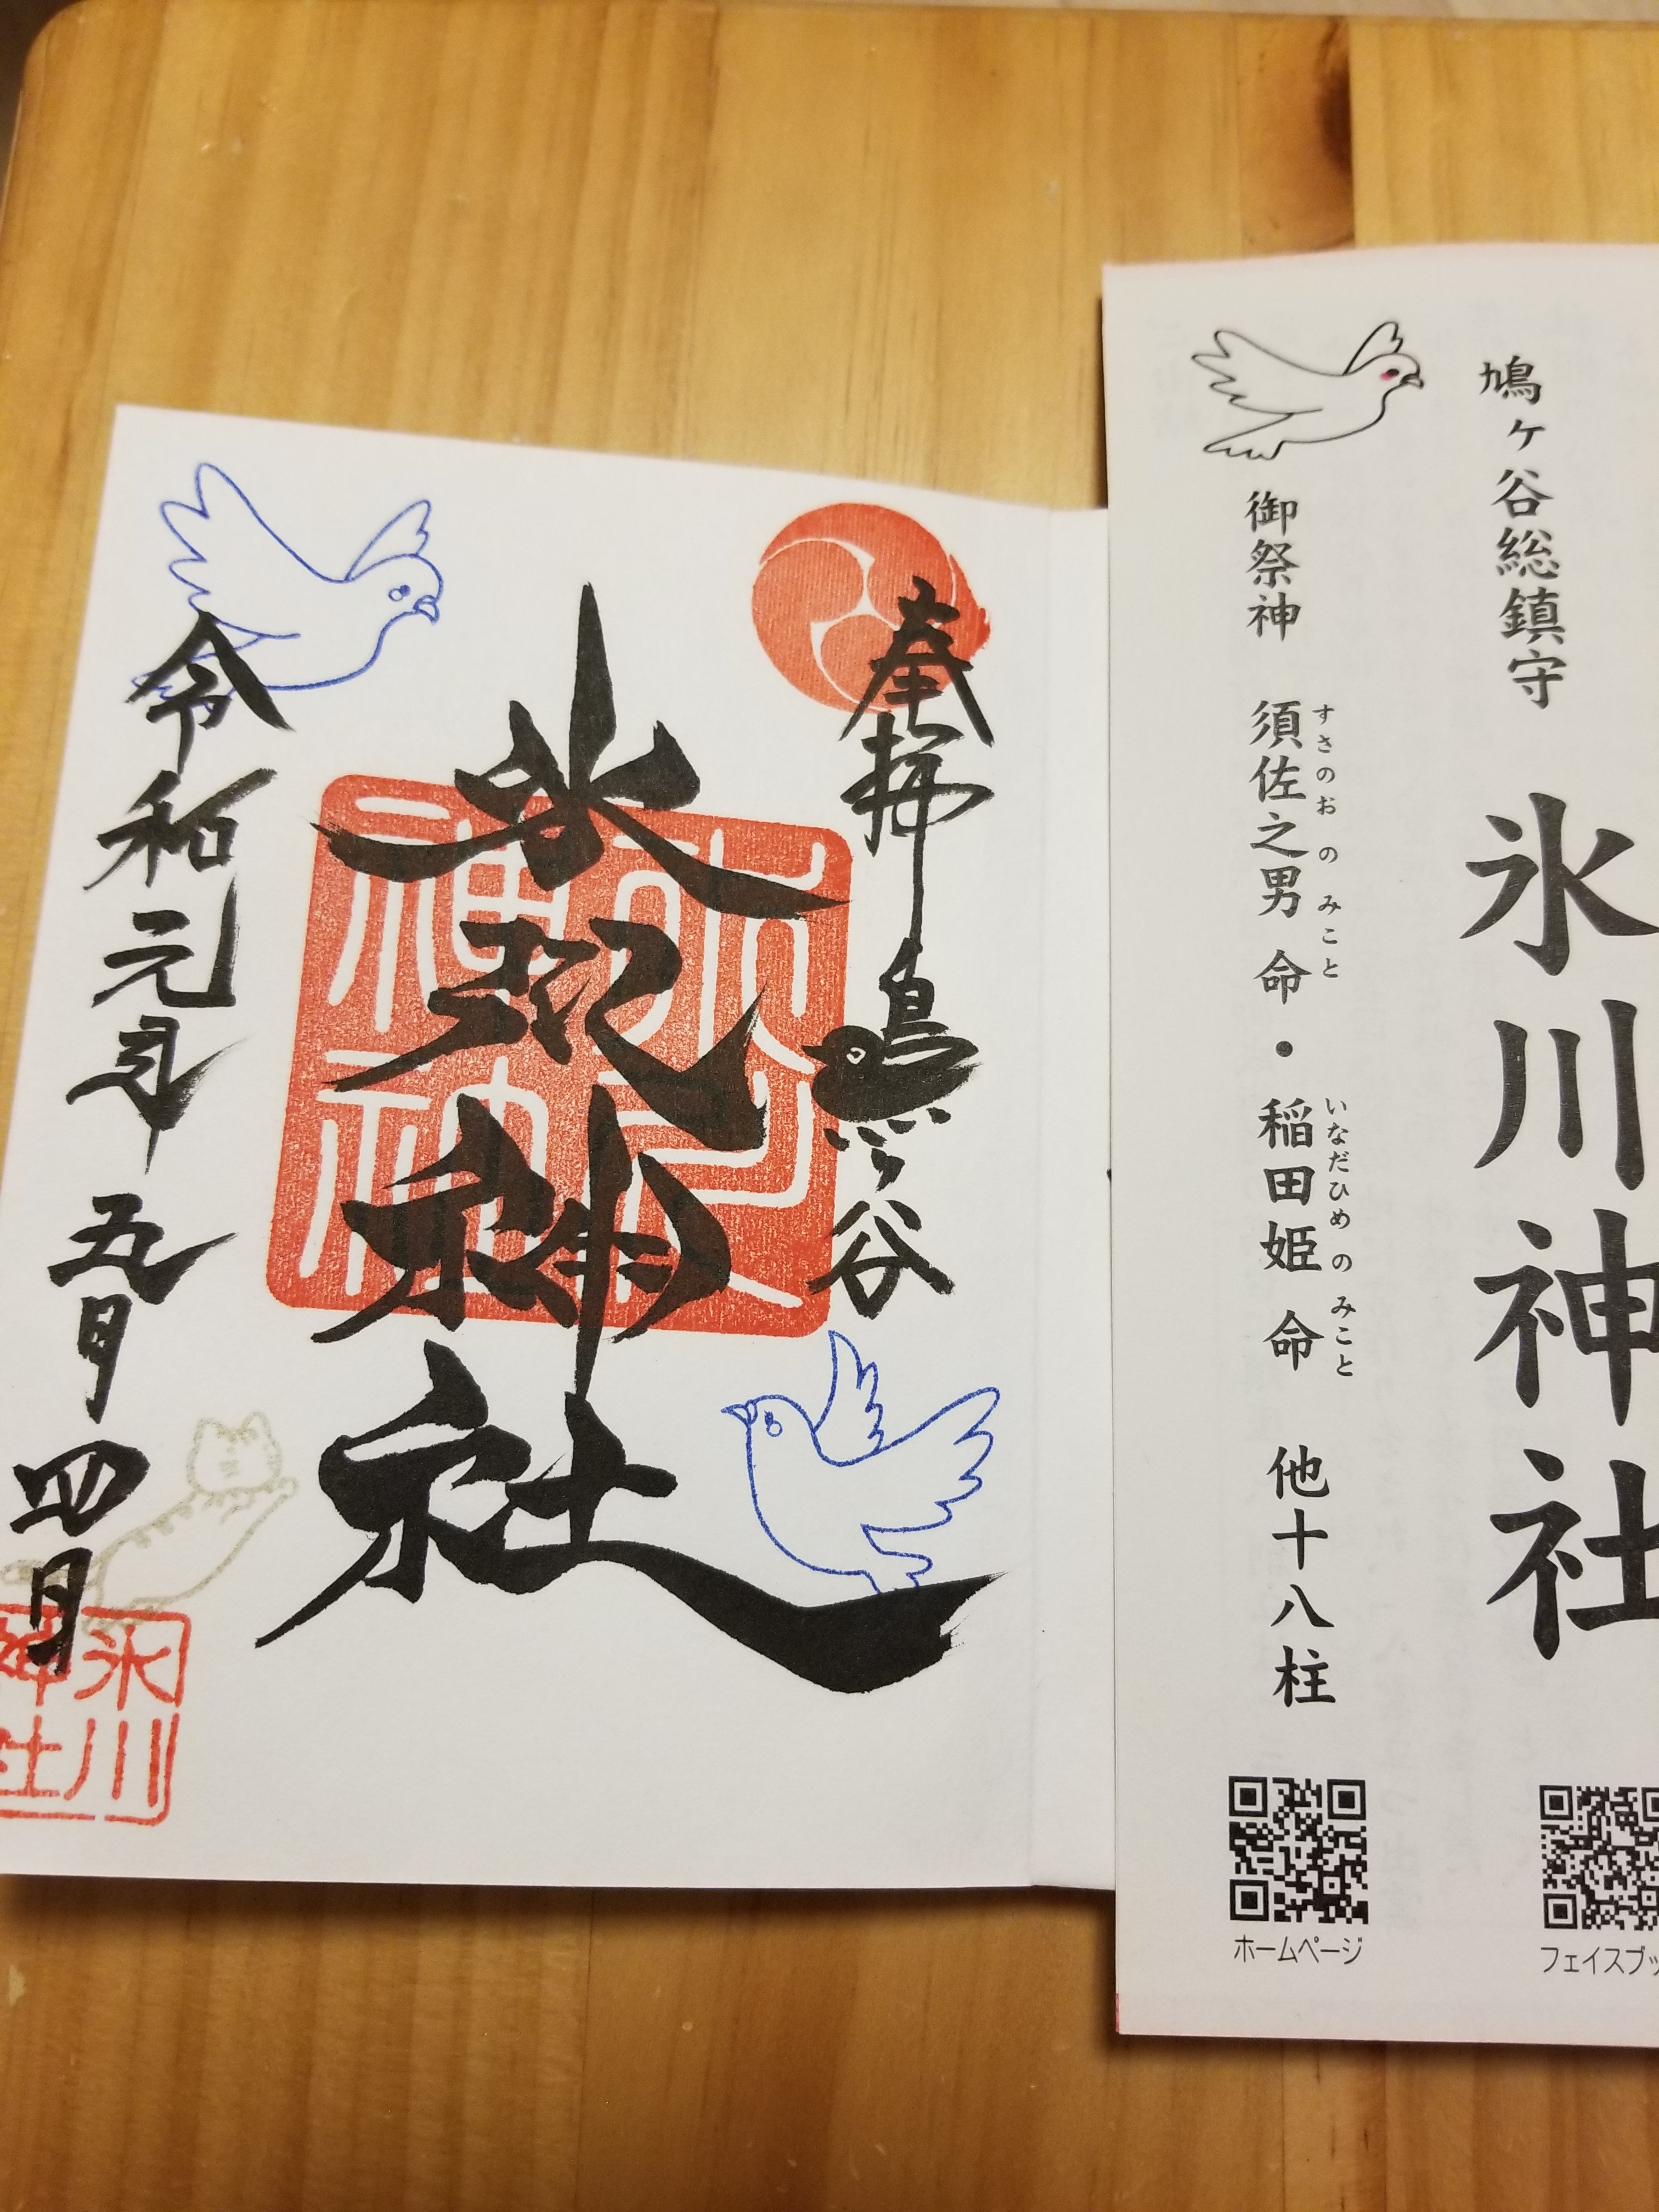 鳩ヶ谷総鎮守
氷川神社
御祭神 須佐之男命・稲田姫命 他十八柱
すさのおのみこと
いなだひめのみこと
ホームページ
フェイスブッ
奉拝 鳩ヶ谷
氷川神社
令和元年五月四日
氷川
神社